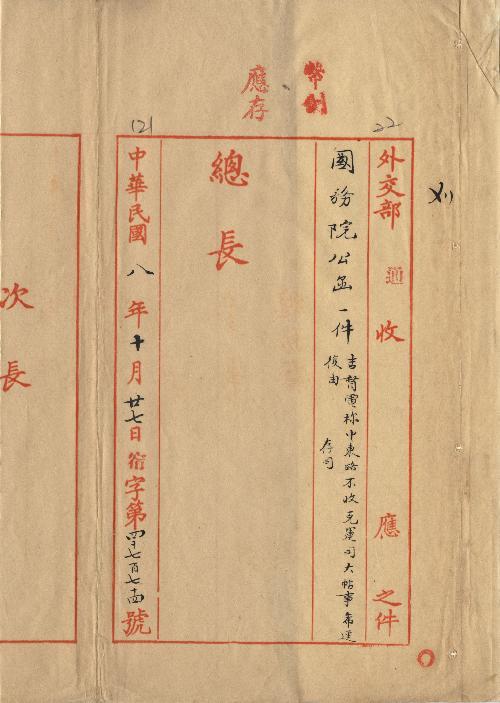 幣制
應存
22
121
刈
外交部 通 收 應 之件
國務院公函一件
吉督電称中東路不收克運司大帖事希速
復由
存司
總長
中華民國八年十月廿七日衔字第四千七百七十四號
次長